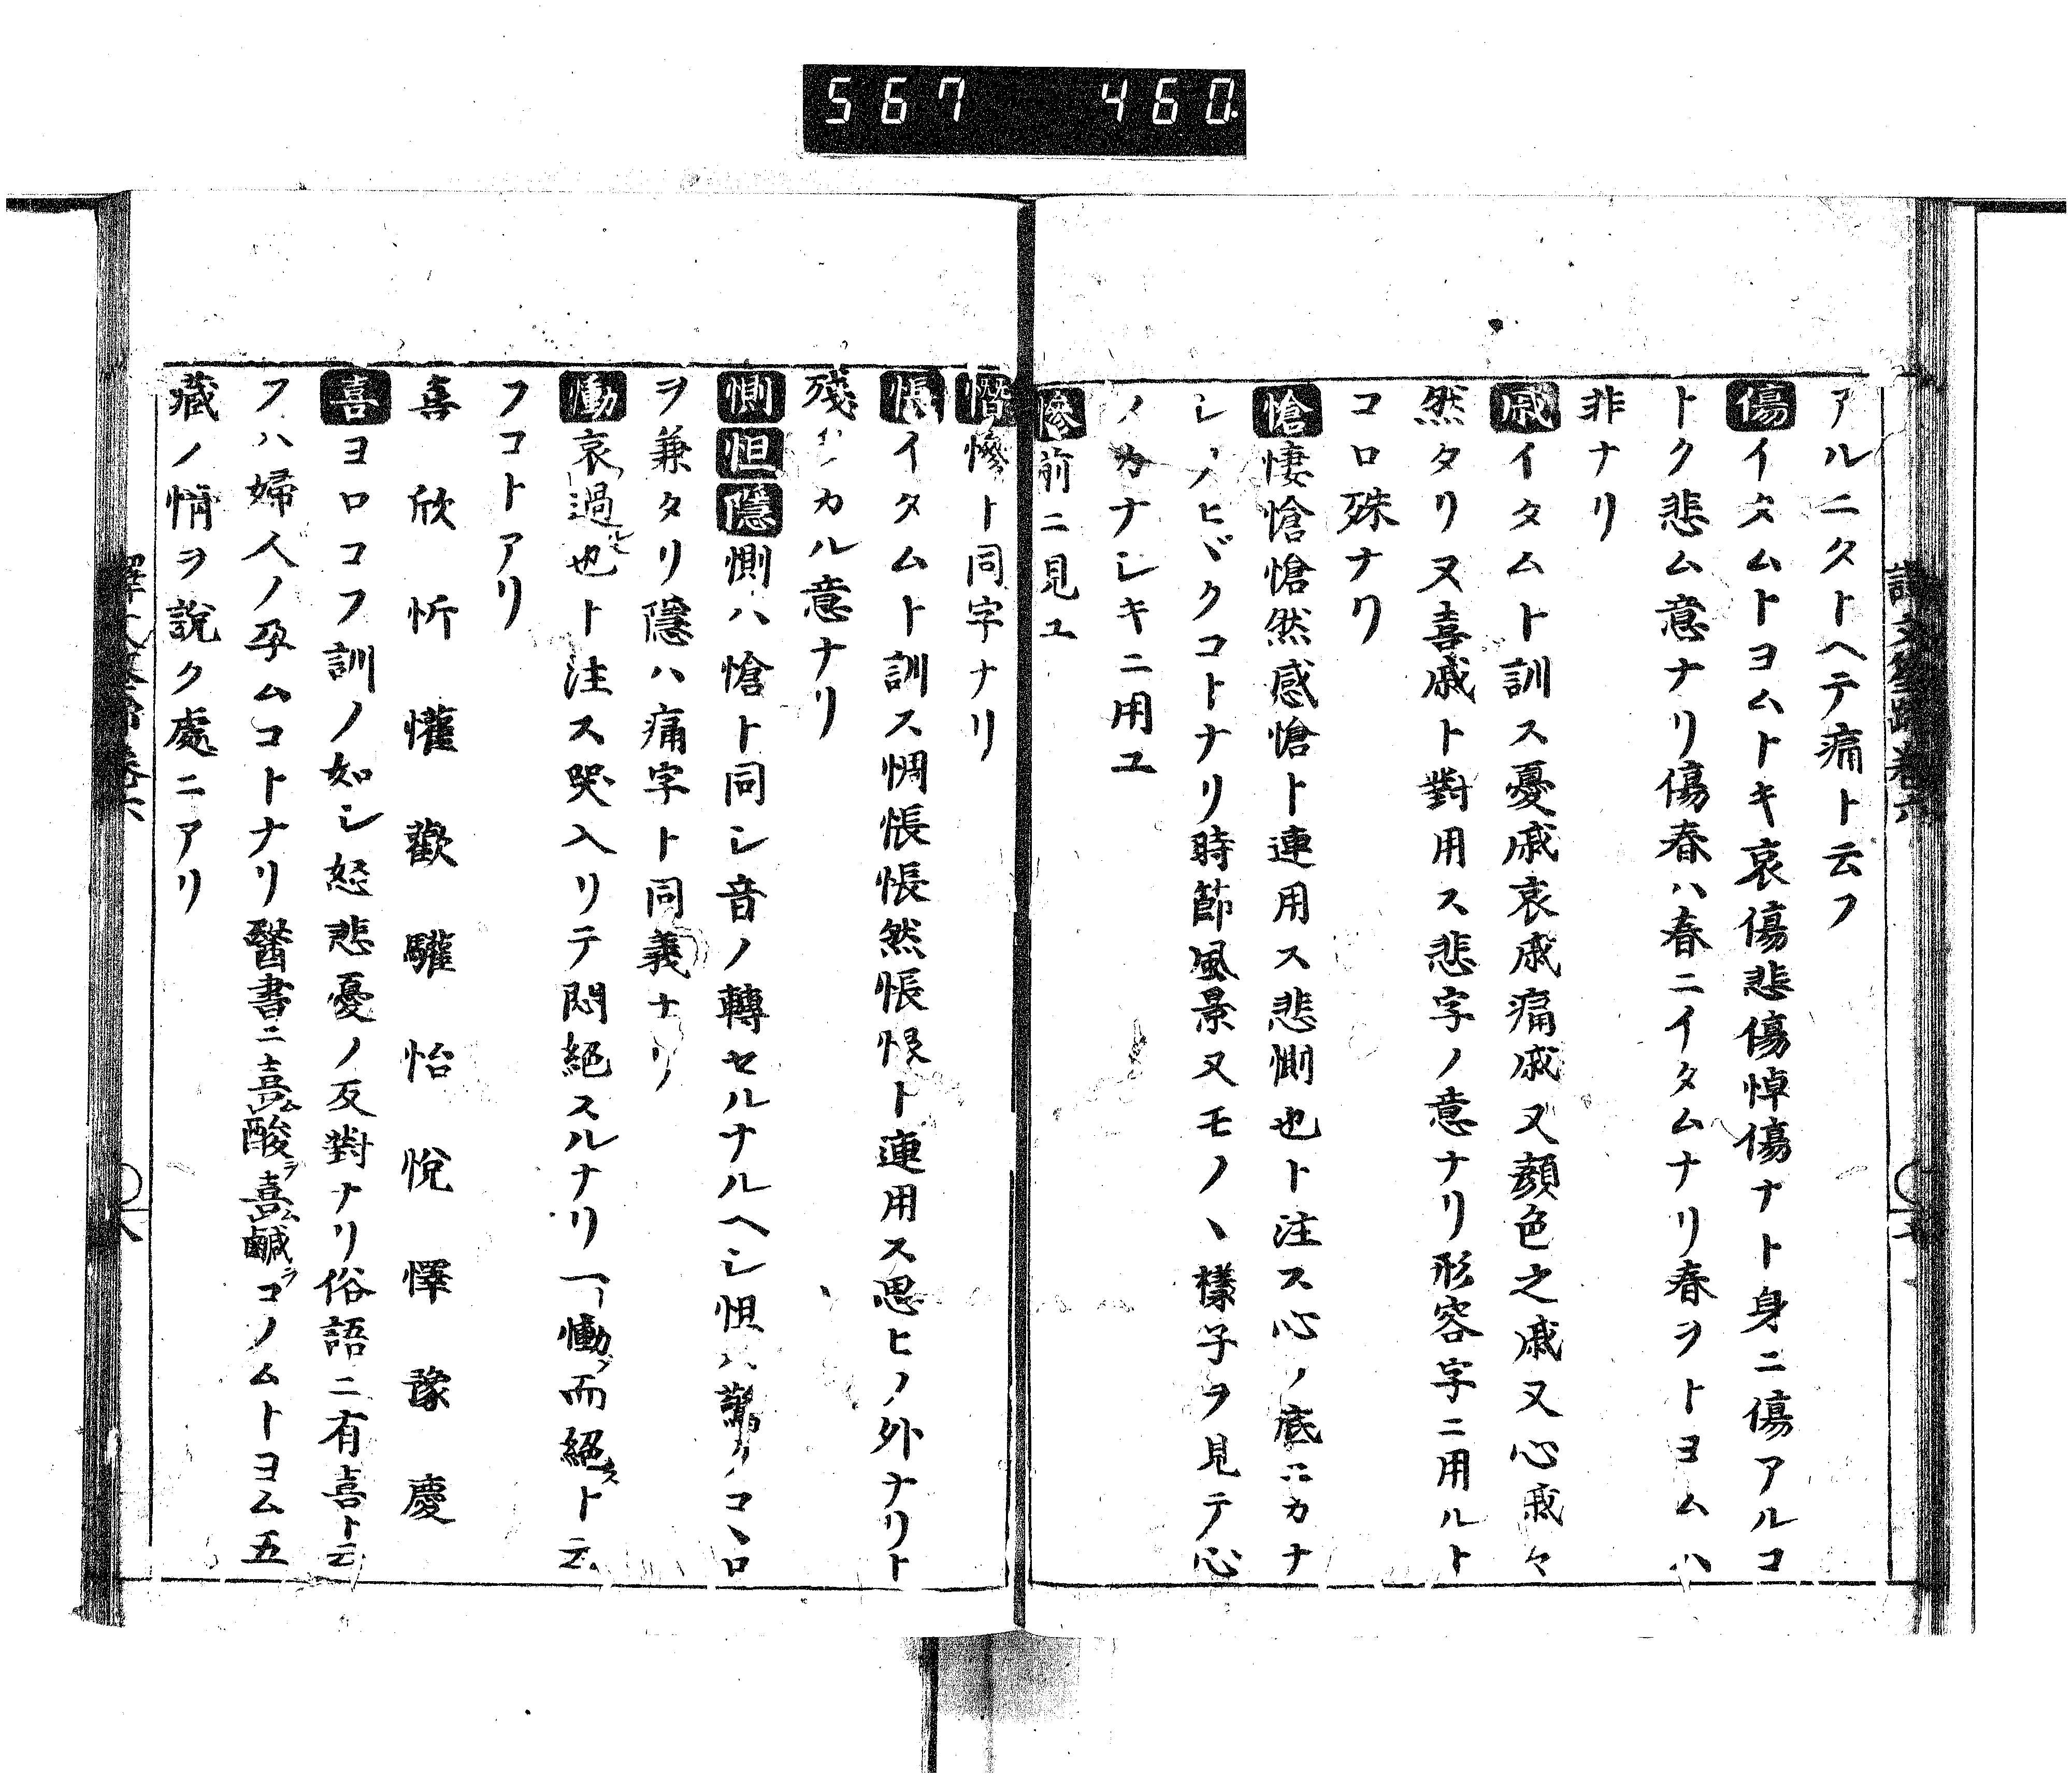 567 460.
アルニタトヘテ痛ト云フ
傷イタムトヨムトキ哀傷悲傷悼傷ナト身ニ傷アルコ
トク悲ム意ナリ傷春ハ春ニイタムナリ春ヲトヨムハ
非ナリ
戚イタムト訓ス憂戚哀戚痛戚又顔色之戚又心戚々
然タリ又喜戚ト對用ス悲字ノ意ナリ形容字ニ用ルト
コロ殊ナリ
愴悽愴愴然感愴ト連用ス悲惻也ト注ス心ノ底ニカナ
シノヒヾクコトナリ時節風景又モノヽ樣子ヲ見テ心
ノカナシキニ用ユ
慘前ニ見ユ
憯慘ト同字ナリ
悵イタムト訓ス惆悵悵然悵恨ト連用ス思ヒノ外ナリト
殘 カル意ナリ
惻怛隱惻ハ愴ト同シ音ノ轉セルナルヘシ怛ハ驚クノコヽロ
ヲ兼タリ隱ハ痛字ト同義ナリ
慟哀過也ト注ス哭入リテ悶絕スルナリ一慟シテ而絕スト云
フコトアリ
喜欣忻懽歡驩怡悅懌豫慶
喜ヨロコフ訓ノ如シ怒悲憂ノ反對ナリ俗語ニ有喜ト云
フハ婦人ノ孕ムコトナリ醫書ニ喜ム酸ヲ喜ム鹹ヲコノムトヨム五
藏ノ情ヲ說ク處ニアリ